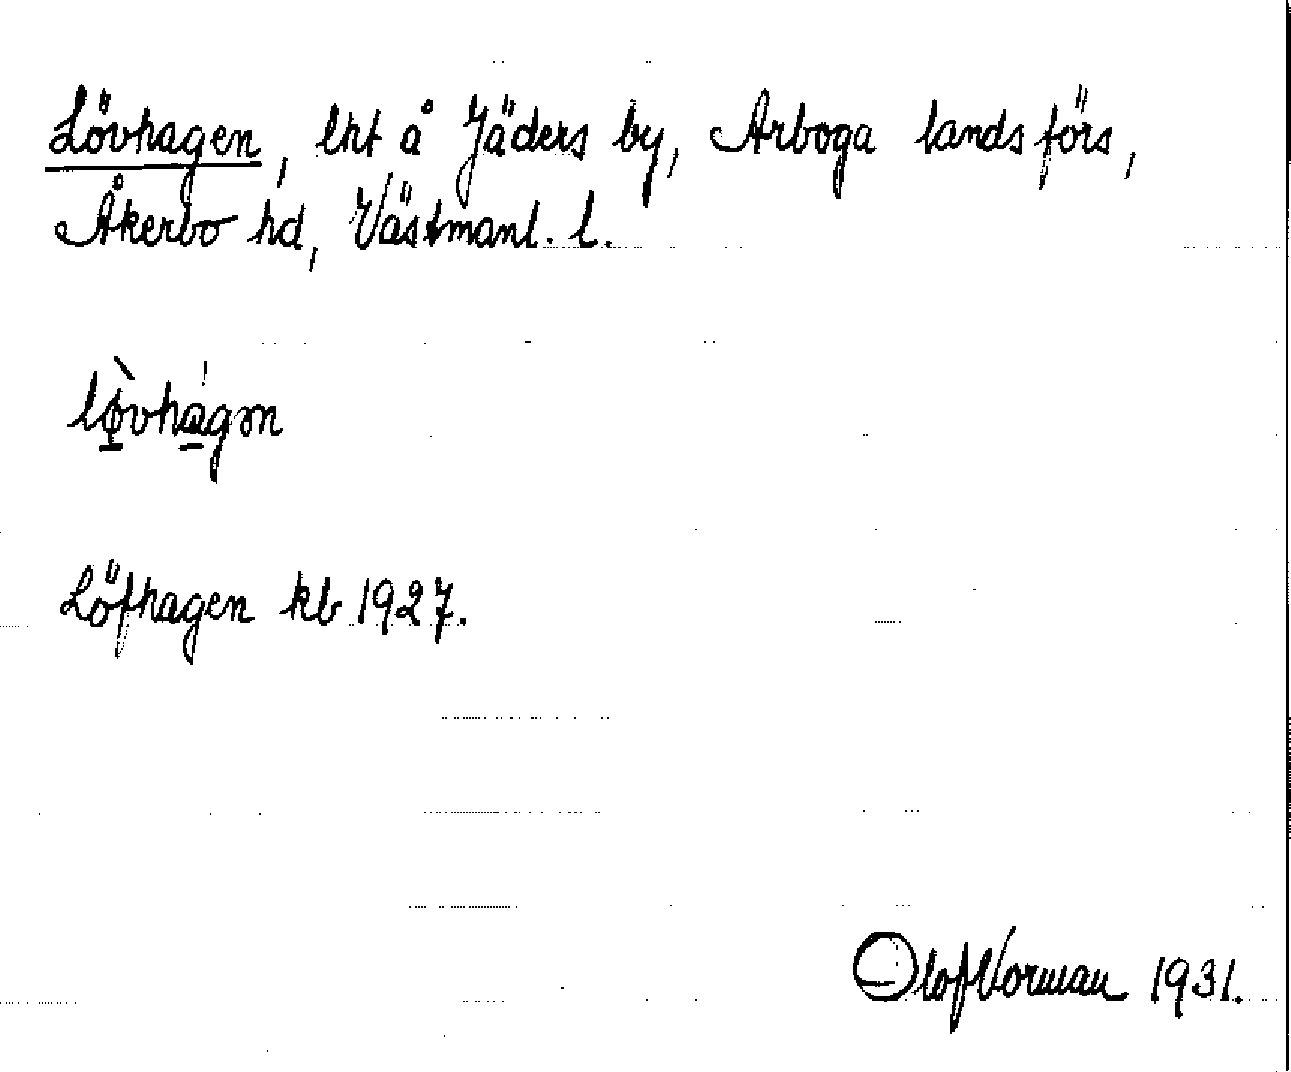 Lövhagen, lht å Jäders by, Arboga landsförs,
Åkerbo hd, Västmanl. l.
lø̀vhágən
Löfhagen kb 1927.
Olof Vorman 1931.